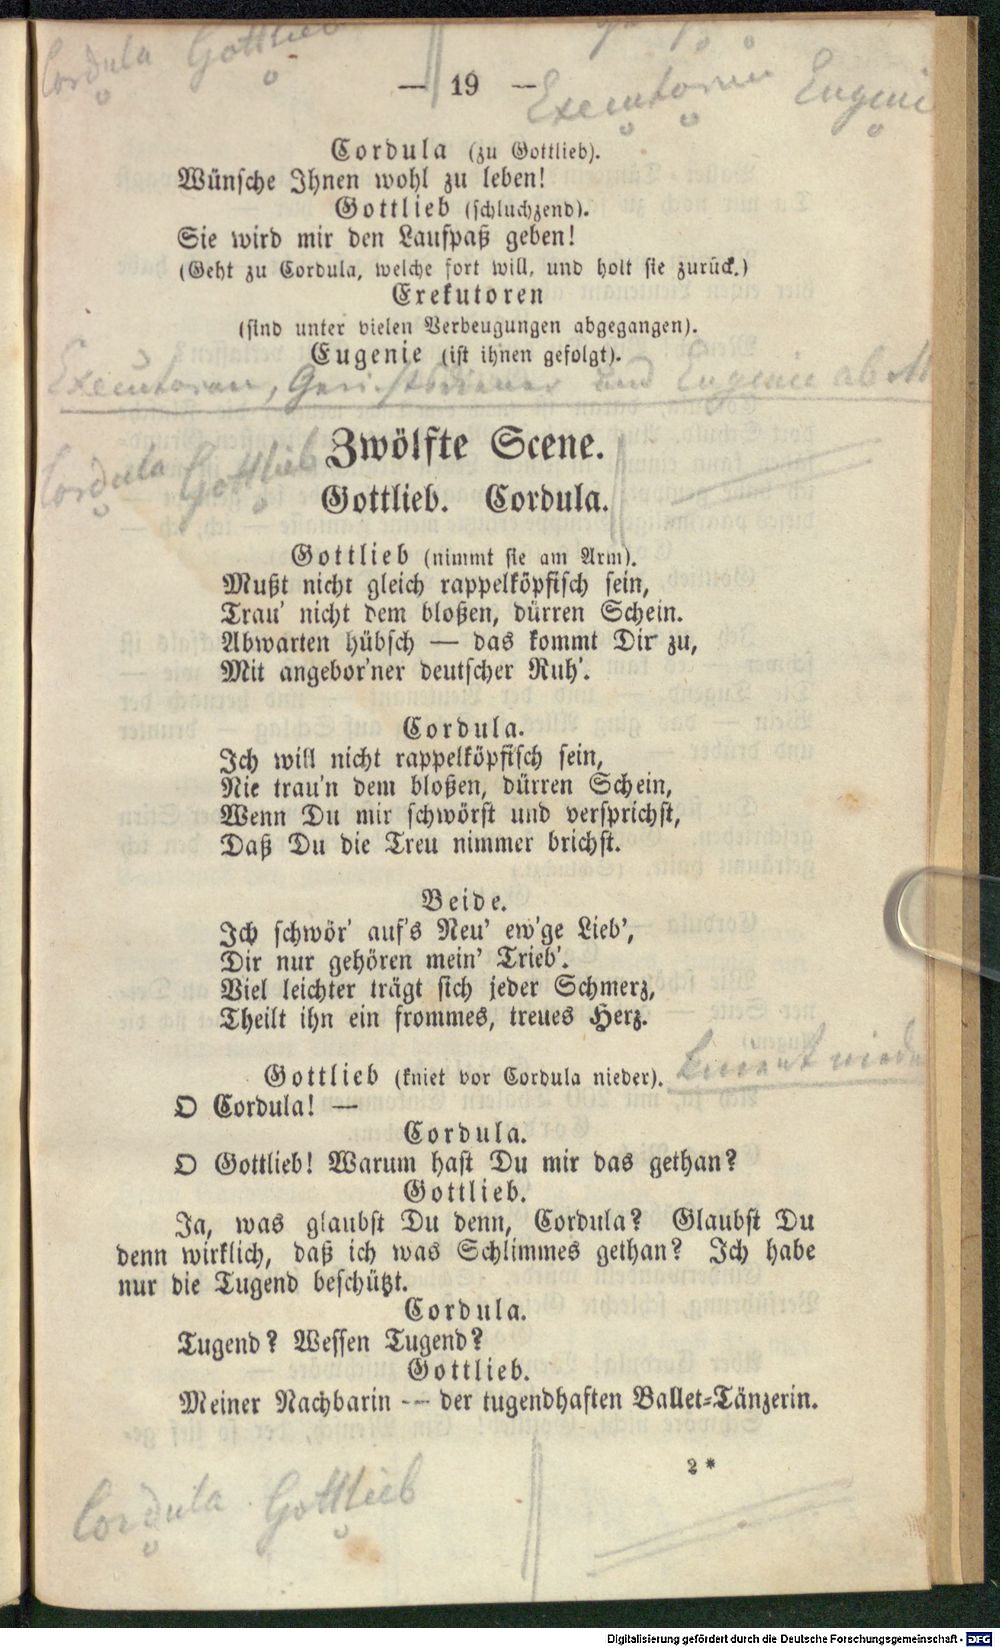 Cordula Gottlieb
— 19 —
Executoren Eugenie
Cordula (zu Gottlieb).
Wünsche Ihnen wohl zu leben!
Gottlieb (schluchzend).
Sie wird mir den Laufpaß geben!
(Geht zu Cordula, welche fort will, und holt sie zurück.)
Exekutoren
(sind unter vielen Verbeugungen abgegangen).
Eugenie (ist ihnen gefolgt).
Executoren, Gerichtsdiener und Eugenie ab
Zwölfte Scene.
Cordula Gottlieb
Gottlieb. Cordula.
Gottlieb (nimmt sie am Arm).
Mußt nicht gleich rappelköpfisch sein,
Trau' nicht dem bloßen, dürren Schein.
Abwarten hübsch — das kommt Dir zu,
Mit angebor'ner deutscher Ruh'.
Cordula.
Ich will nicht rappelköpfisch sein,
Nie trau'n dem bloßen, dürren Schein,
Wenn Du mir schwörst und versprichst,
Daß Du die Treu nimmer brichst.
Beide.
Ich schwör' auf's Neu' ew'ge Lieb',
Dir nur gehören mein' Trieb'.
Viel leichter trägt sich jeder Schmerz,
Theilt ihn ein frommes, treues Herz.
Gottlieb (kniet vor Cordula nieder). kniet niede
O Cordula! —
Cordula.
O Gottlieb! Warum hast Du mir das gethan?
Gottlieb.
Ja, was glaubst Du denn, Cordula? Glaubst Du
denn wirklich, daß ich was Schlimmes gethan? Ich habe
nur die Tugend beschützt.
Cordula.
Tugend? Wessen Tugend?
Gottlieb.
Meiner Nachbarin — der tugendhaften Ballet-Tänzerin.
2*
Cordula Gottlieb
Digitalisierung gefördert durch die Deutsche Forschungsgemeinschaft - DFG